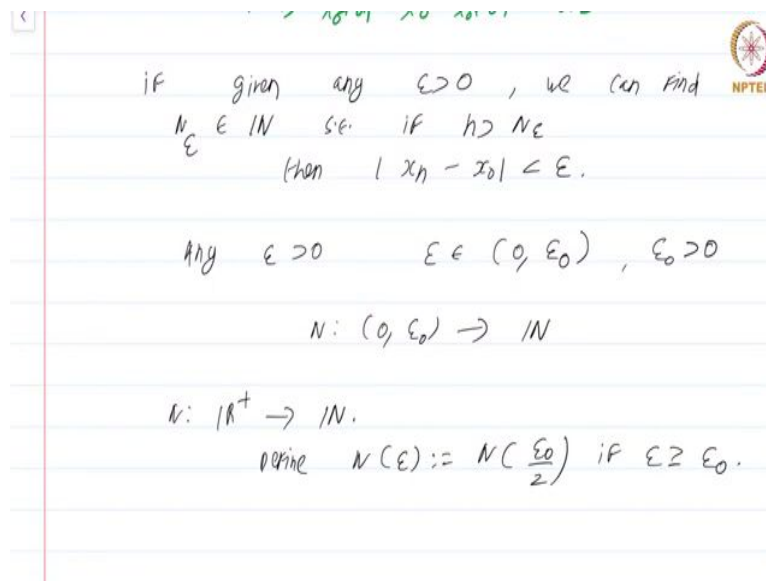 NPTEL
if given any ε>0, we can find
N_ε ∈ IN s.t. if n> N_ε
then | x_n - x_0 | < ε.
Any ε >0 ε ∈ (0, ε_0), ε_0 >0
N: (0, ε_0) → IN
N: IR^+ → IN.
Define N(ε) := N(ε_0/2) if ε ≥ ε_0.